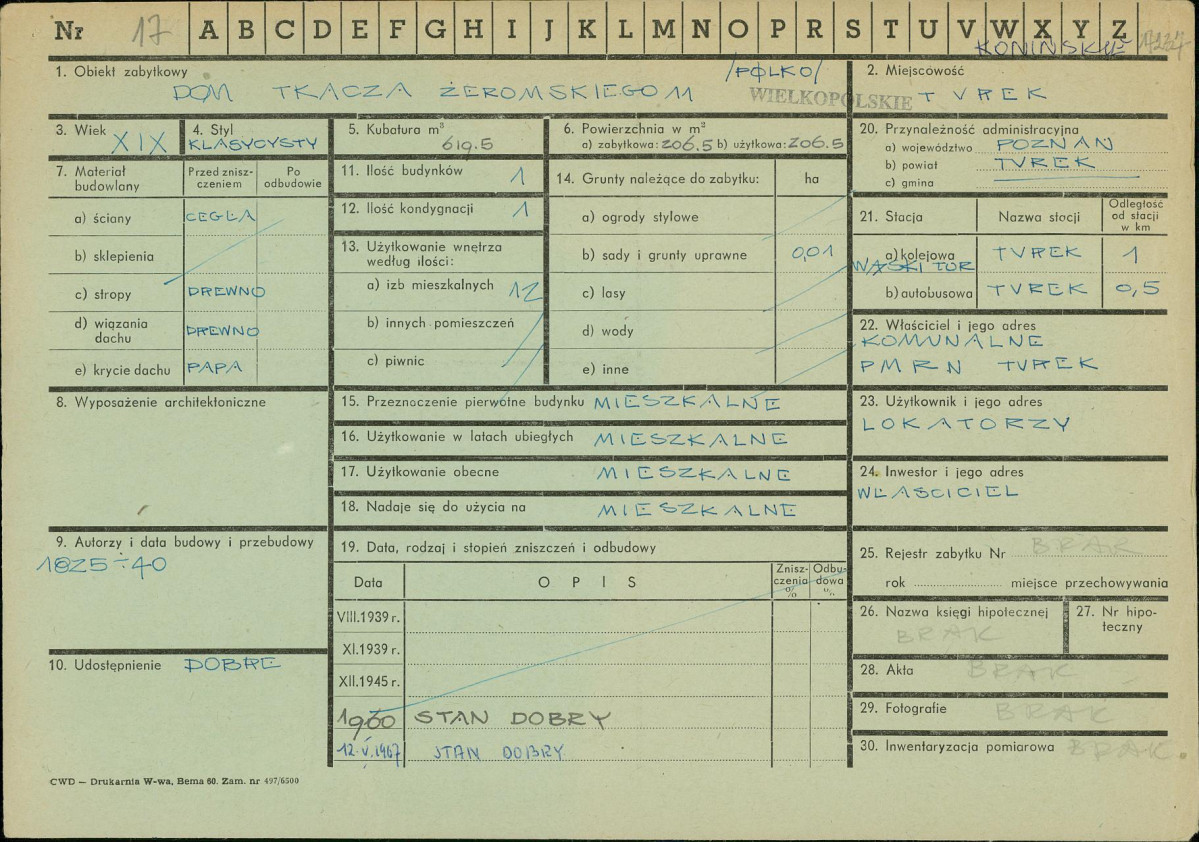 Nr 17 A B C D E F G H I J K L M N O P R S T U V W X Y Z
KONIŃSKIE
1. Obiekt zabytkowy /POLKO/
DOM TKACZA ŻEROMSKIEGO 11
2. Miejscowość
WIELKOPOLSKIE TUREK
3. Wiek XIX
4. Styl
KLASYCYSTY
5. Kubatura m³
619.5
6. Powierzchnia w m²
a) zabytkowa: 206.5 b) użytkowa: 206.5
20. Przynależność administracyjna
a) województwo POZNAŃ
b) powiat TUREK
c) gmina
7. Materiał budowlany
Przed znisz-
czeniem
Po
odbudowie
a) ściany CEGŁA
b) sklepienia
c) stropy DREWNO
d) wiązania
dachu DREWNO
e) krycie dachu PAPA
11. Ilość budynków 1
12. Ilość kondygnacji 1
13. Użytkowanie wnętrza
według ilości:
a) izb mieszkalnych 12
b) innych pomieszczeń
c) piwnic
14. Grunty należące do zabytku: ha
a) ogrody stylowe
b) sady i grunty uprawne 0,01
c) lasy
d) wody
e) inne
21. Stacja Nazwa stacji
Odległość
od stacji
w km
a) kolejowa TUREK 1
WĄSKI TOR
b) autobusowa TUREK 0,5
22. Właściciel i jego adres
KOMUNALNE
PMRN TUREK
8. Wyposażenie architektoniczne
15. Przeznaczenie pierwotne budynku MIESZKALNE
16. Użytkowanie w latach ubiegłych MIESZKALNE
17. Użytkowanie obecne MIESZKALNE
18. Nadaje się do użycia na MIESZKALNE
23. Użytkownik i jego adres
LOKATORZY
24. Inwestor i jego adres
WŁAŚCICIEL
9. Autorzy i data budowy i przebudowy
1825÷40
10. Udostępnienie DOBRE
19. Data, rodzaj i stopień zniszczeń i odbudowy
Data OPIS
Znisz-
czenia
%
Odbu-
dowa
%
VIII.1939 r.
XI.1939 r.
XII.1945 r.
1960 STAN DOBRY
12.V.1967 STAN DOBRY
25. Rejestr zabytku Nr BRAK
rok miejsce przechowywania
26. Nazwa księgi hipotecznej
BRAK
27. Nr hipo-
teczny
28. Akta BRAK
29. Fotografie BRAK
30. Inwentaryzacja pomiarowa BRAK.
CWD — Drukarnia W-wa, Bema 60. Zam. nr 497/6500